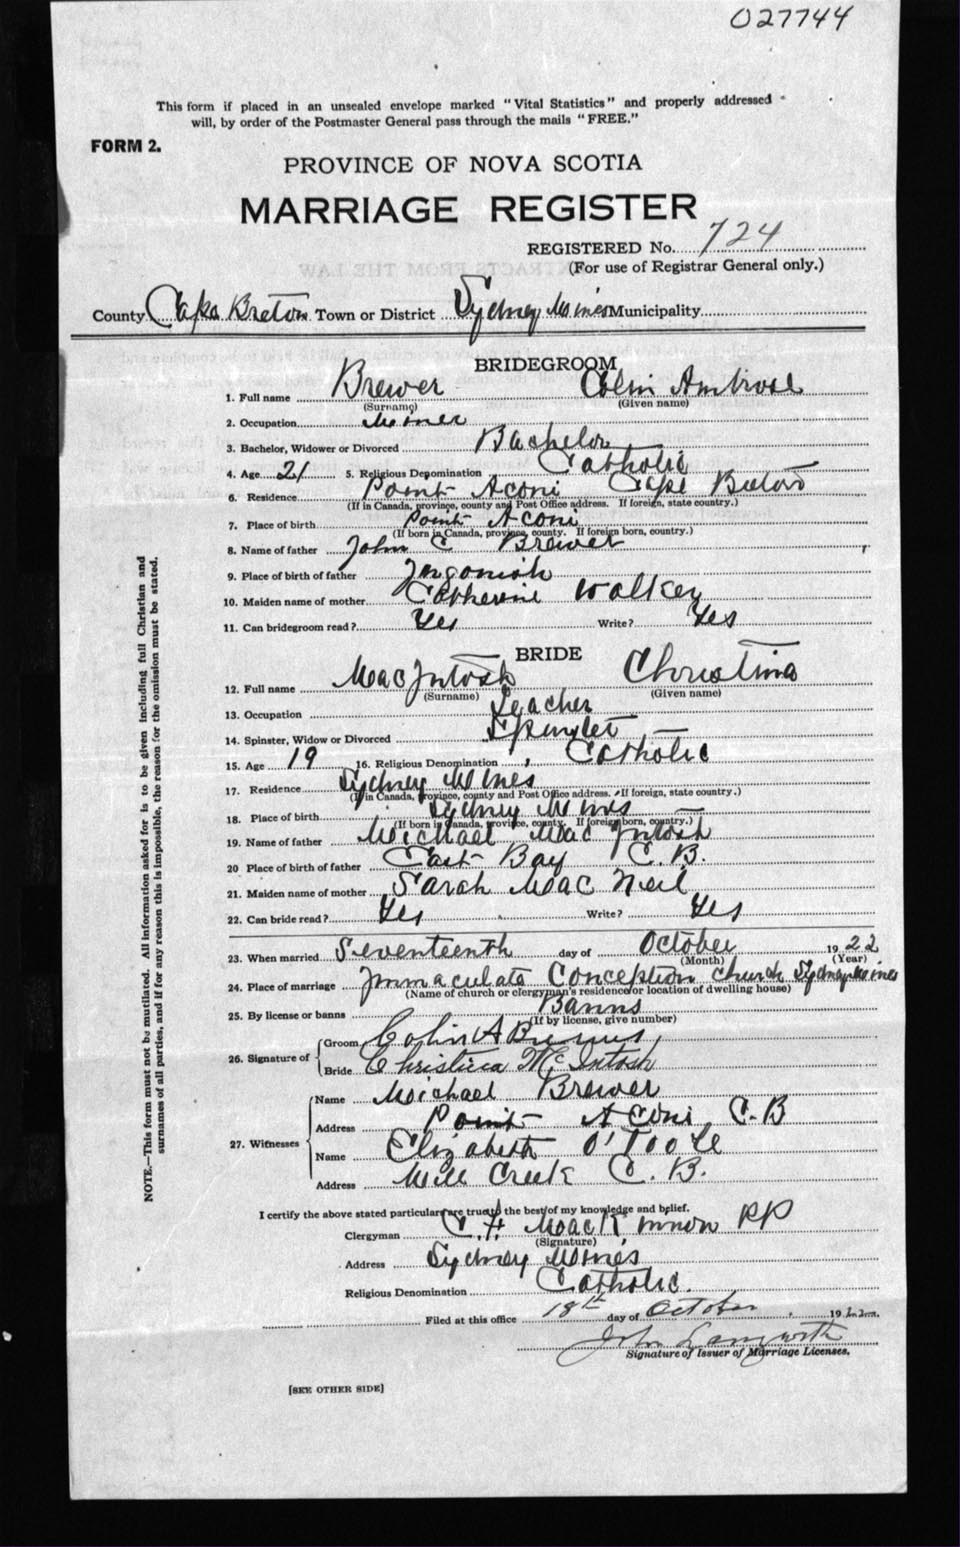 027744
This form if placed in an unsealed envelope marked "Vital Statistics" and properly addressed
will, by order of the Postmaster General pass through the mails "FREE."
FORM 2.
PROVINCE OF NOVA SCOTIA
MARRIAGE REGISTER
REGISTERED No. 724
(For use of Registrar General only.)
County Cape Breton Town or District Sydney Mines Municipality
BRIDEGROOM
1. Full name Brewer Colin Ambrose
(Surname) (Given name)
2. Occupation Miner
3. Bachelor, Widower or Divorced Bachelor
4. Age 21 5. Religious Denomination Catholic
6. Residence Point Aconi Cape Breton
(If in Canada, province, county and Post Office address. If foreign, state country.)
7. Place of birth Point Aconi
(If born in Canada, province, county. If foreign born, country.)
8. Name of father John C Brewer
9. Place of birth of father Ingonish
10. Maiden name of mother Catherine Walkey
11. Can bridegroom read? Yes Write? Yes
BRIDE
12. Full name MacIntosh Christina
(Surname) (Given name)
13. Occupation Teacher
14. Spinster, Widow or Divorced Spinster
15. Age 19 16. Religious Denomination Catholic
17. Residence Sydney Mines
(If in Canada, province, county and Post Office address. If foreign, state country.)
18. Place of birth Sydney Mines
(If born in Canada, province, county. If foreign born, country.)
19. Name of father Michael MacIntosh
20 Place of birth of father East Bay C.B.
21. Maiden name of mother Sarah MacNeil
22. Can bride read? Yes Write? Yes
23. When married Seventeenth day of October 1922
(Month) (Year)
24. Place of marriage Immaculate Conception Church Sydney Mines
(Name of church or clergyman's residence or location of dwelling house)
25. By license or banns Banns
(If by license, give number)
26. Signature of Groom Colin A Brewer
Bride Christina McIntosh
27. Witnesses
Name Michael Brewer
Address Point Aconi C.B
Name Elizabeth O'Toole
Address Mill Creek C.B.
I certify the above stated particulars are true to the best of my knowledge and belief.
Clergyman C. F. MacKinnon PP
(Signature)
Address Sydney Mines
Religious Denomination Catholic
Filed at this office 18th day of October 192
John
Signature of Issuer of Marriage Licenses.
[SEE OTHER SIDE]
NOTE.—This form must not be mutilated. All information asked for is to be given including full Christian and
surnames of all parties, and if for any reason this is impossible, the reason for the omission must be stated.